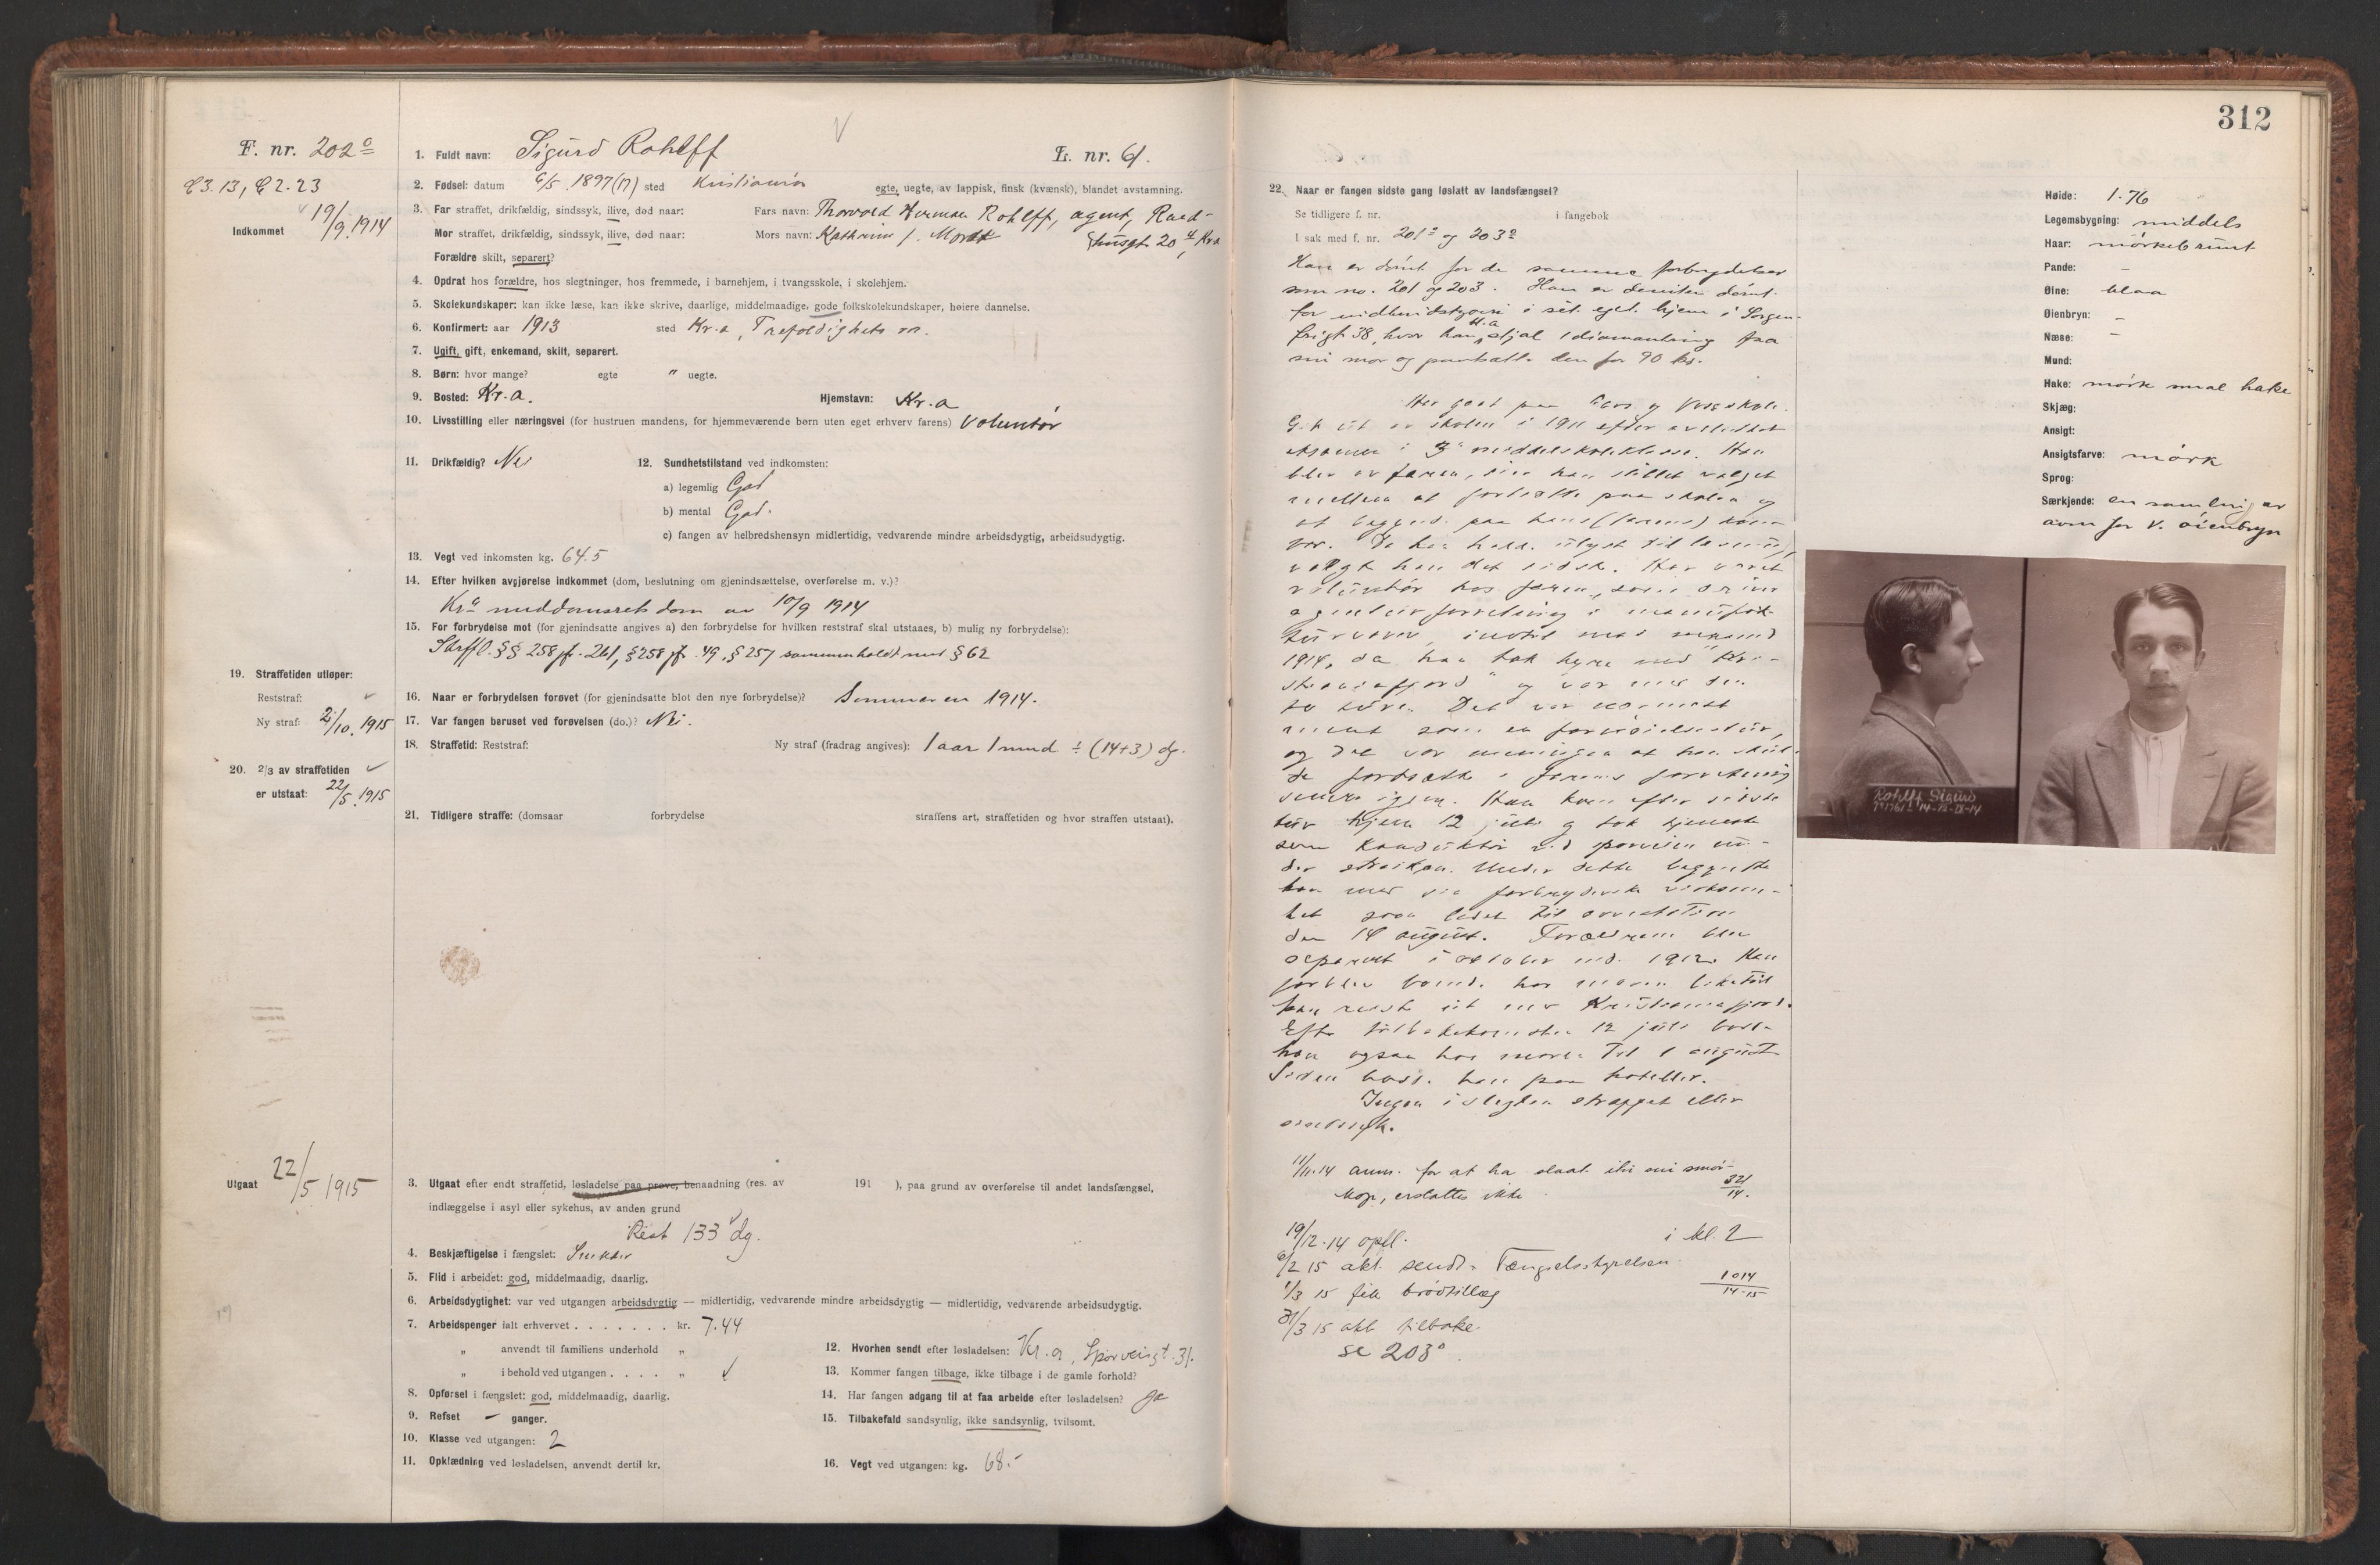 F. nr. 202
C 3. 13, C 2. 23
Indkommet 19/9. 1914
1. Fuldt navn: Sigurd Rohlff
L. nr. 61.
2. Fødsel: datum 6/5. 1897 (17) sted Kristiania egte, uegte, av lappisk, finsk (kvænsk), blandet avstamning.
3. Far straffet, drikfældig, sindssyk, ilive, død naar: Fars navn: Thorvald Herman Rohlff, agent, Raad-
Mor straffet, drikfældig, sindssyk, ilive, død naar: Mors navn: Kathrine f. husgt. 20, Kr.a
Forældre skilt, separert?
4. Opdrat hos forældre, hos slegtninger, hos fremmede, i barnehjem, i tvangsskole, i skolehjem.
5. Skolekundskaper: kan ikke læse, kan ikke skrive, daarlige, middelmaadige, gode folkskolekundskaper, høiere dannelse.
6. Konfirmert: aar 1913 sted Kr.a, Trefoldighets m.
7. Ugift, gift, enkemand, skilt, separert.
8. Børn: hvor mange? egte " uegte.
9. Bosted: Kr.a. Hjemstavn: Kr.a
10. Livsstilling eller næringsvei (for hustruen mandens, for hjemmeværende børn uten eget erhverv farens) Voluntør
11. Drikfældig? Nei
12. Sundhetstilstand ved indkomsten:
a) legemlig God
b) mental God.
c) fangen av helbredshensyn midlertidig, vedvarende mindre arbeidsdygtig, arbeidsudygtig.
13. Vegt ved inkomsten kg. 64.5
14. Efter hvilken avgjørelse indkommet (dom, beslutning om gjenindsættelse, overførelse m. v.)?
Kr.a meddomsrets dom av 10/9 1914
15. For forbrydelse mot (for gjenindsatte angives a) den forbrydelse for hvilken reststraf skal utstaaes, b) mulig ny forbrydelse):
Strfl. §§ 258 jf. 261, § 258 jf. 49, § 257 sammenholdt med § 62
16. Naar er forbrydelsen forøvet (for gjenindsatte blot den nye forbrydelse)? Sommeren 1914.
17. Var fangen beruset ved forøvelsen (do.)? Nei.
18. Straffetid: Reststraf: Ny straf (fradrag angives): 1 aar 1 mnd ÷ (14+3) dg.
19. Straffetiden utløper:
Reststraf:
Ny straf: 2/10. 1915
20. 2/3 av straffetiden
er utstaat: 22/5. 1915
21. Tidligere straffe: (domsaar forbrydelse straffens art, straffetiden og hvor straffen utstaat).
Utgaat 22/5 1915
3. Utgaat efter endt straffetid, løsladelse paa prøve, benaadning (res. av 191 ), paa grund av overførelse til andet landsfængsel,
indlæggelse i asyl eller sykehus, av anden grund
Rest 133 dg.
4. Beskjæftigelse i fængslet: Snekker
5. Flid i arbeidet: god, middelmaadig, daarlig.
6. Arbeidsdygtighet: var ved utgangen arbeidsdygtig — midlertidig, vedvarende mindre arbeidsdygtig — midlertidig, vedvarende arbeidsudygtig.
7. Arbeidspenger ialt erhvervet . . . . . . . kr. 7.44
" anvendt til familiens underhold "
" i behold ved utgangen . . . . "
8. Opførsel i fængslet: god, middelmaadig, daarlig.
9. Refset - ganger.
10. Klasse ved utgangen: 2
11. Opklædning ved løsladelsen, anvendt dertil kr.
12. Hvorhen sendt efter løsladelsen: Kr.a, Sporveisgt. 31.
13. Kommer fangen tilbage, ikke tilbage i de gamle forhold?
14. Har fangen adgang til at faa arbeide efter løsladelsen? Ja
15. Tilbakefald sandsynlig, ikke sandsynlig, tvilsomt.
16. Vegt ved utgangen: kg. 68.-
312
22. Naar er fangen sidste gang løslatt av landsfængsel?
Se tidligere f. nr. i fangebok
I sak med f. nr. 201 og 203
Han er dømt for de samme forbrydelser
som no. 201 og 203. Han er desuten dømt
for indbrudstyveri i sit eget hjem i Sorgen-
frigt 38, hvor han bl.a. stjal 1 diamantring fra
sin mor og pantsatte den for 90 kr.
Har gaat paa og Vos skole.
Gik ut av skolen i 1911 efter avsluttet
eksamen i 3 middelskoleklasse. Han
blev av faren, sier han stillet valget
mellem at fortsætte paa skolen og
at begynde paa hans (farens) kon-
tor. Da han hadde ulyst til læsning,
valgte han det sidste. Har været
voluntør hos faren, som driver
agenturforretning i manufak-
turvarer, indtil mai maaned
1914, da han tok hyre med "Kri-
stianiafjord" og var med den
to turer. Det var nærmest
ment som en fornøielsestur,
og det var meningen at han skul-
de fortsætte i farens forretning
senere igjen. Han kom efter sidste
tur hjem 12 juli og tok tjeneste
som konduktør ved sporveien un-
der streiken. Under dette begyndte
han med sin forbryderske virksom-
het som ledet til arrestation
den 14 august. Forældrene blev
separert i oktober md. 1912. Han
forblev boende hos moren like til
han reiste ut med Kristianiafjord.
Efter tilbakekomsten 12 juli bodde
han ogsaa hos moren til 1 august
Siden bodde han paa hoteller.
Ingen i slegten straffet eller
sindssyk.
11/11.14 anm. for at ha slaat itu sin smør-
kop, erstattes ikke 321/14.
19/12.14 opfl. i kl. 2
6/2 15 akt. sendt Fængselsstyrelsen
1/3 15 fik brødtillæg 1014/14-15
31/3 15 akt tilbake.
se 203
Høide: 1.76
Legemsbygning: middels
Haar: mørkebrunt
Pande: -
Øine: blaa
Øienbryn: -
Næse: -
Mund:
Hake: mørk smal hake
Skjæg:
Ansigt:
Ansigtsfarve: mørk
Sprog:
Særkjende: en samling av
arr for v. øienbryn
Rohlff, Sigurd